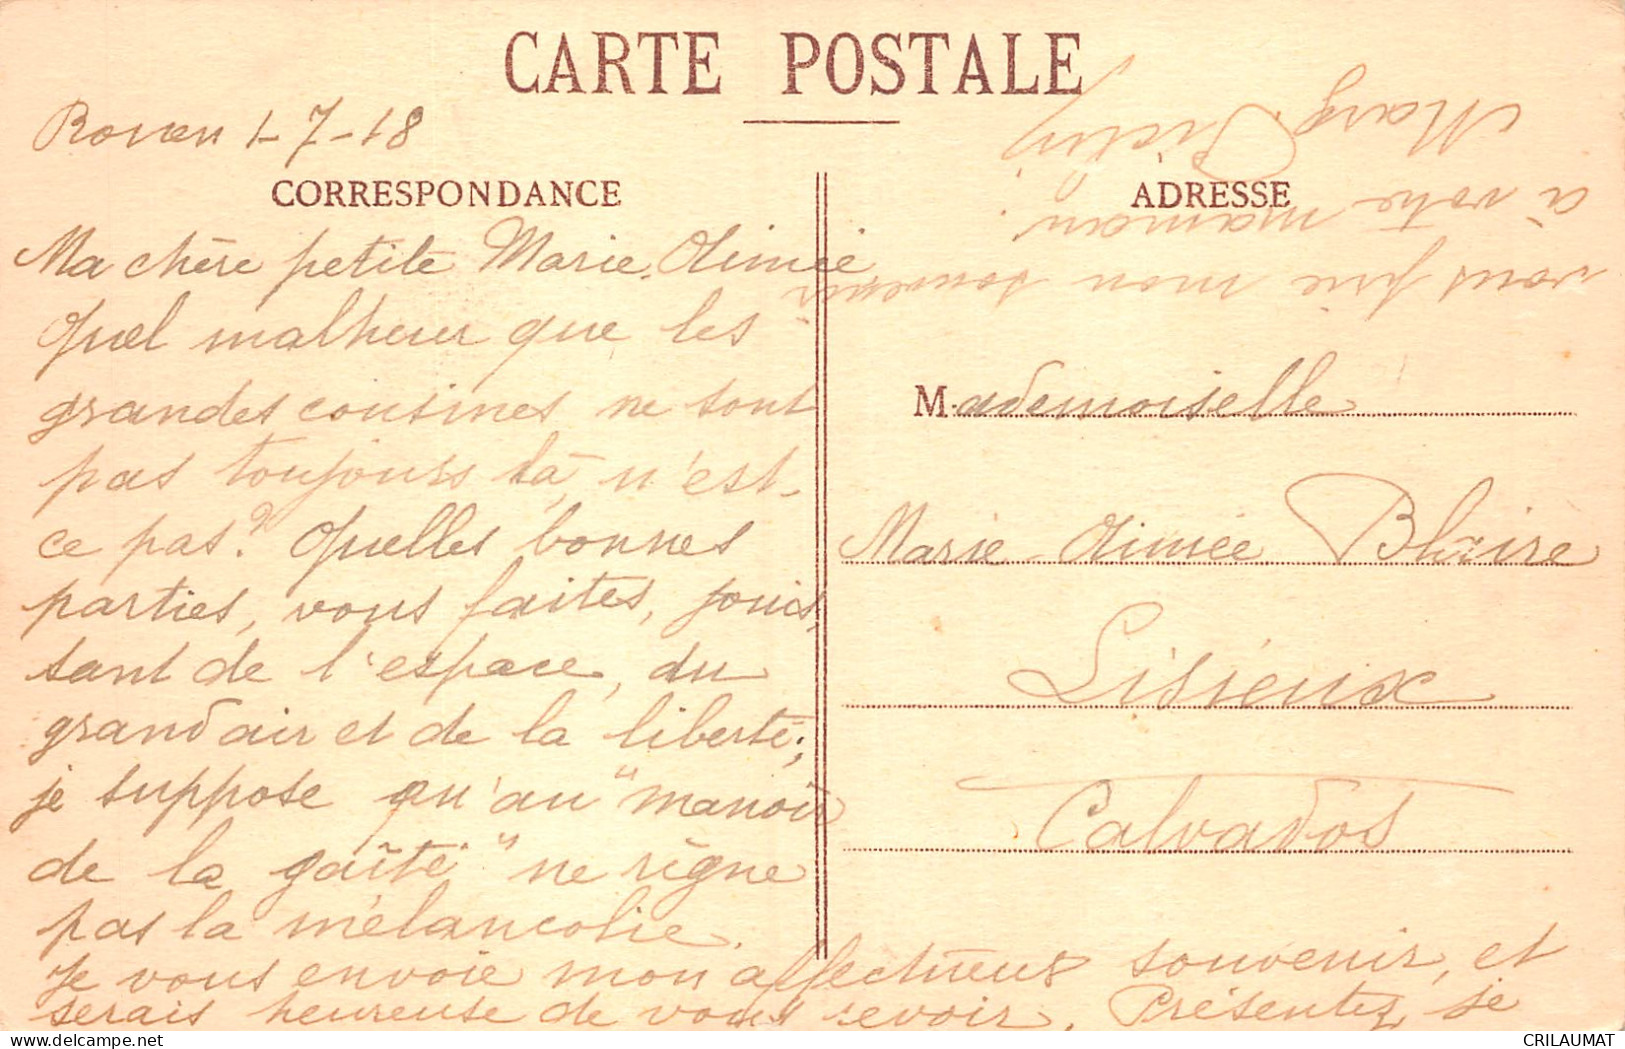 CARTE POSTALE
Rouen 1-7-18
CORRESPONDANCE
Ma chère petite Marie-Aimée
Quel malheur que les
grandes cousines ne sont
pas toujours là, n'est-
ce pas? Quelles bonnes
parties, vous faites, jouis-
sant de l'espace, du
grand air et de la liberté;
je suppose qu'au "manoir
de la gaîté" ne règne
pas la mélancolie.
Je vous envoie mon affectueux souvenir, et
serais heureuse de vous revoir. Présentez, je
vous prie mon souvenir
à votre maman.
Marg.
ADRESSE
Mademoiselle
Marie-Aimée
Lisieux
Calvados
CRILAUMAT